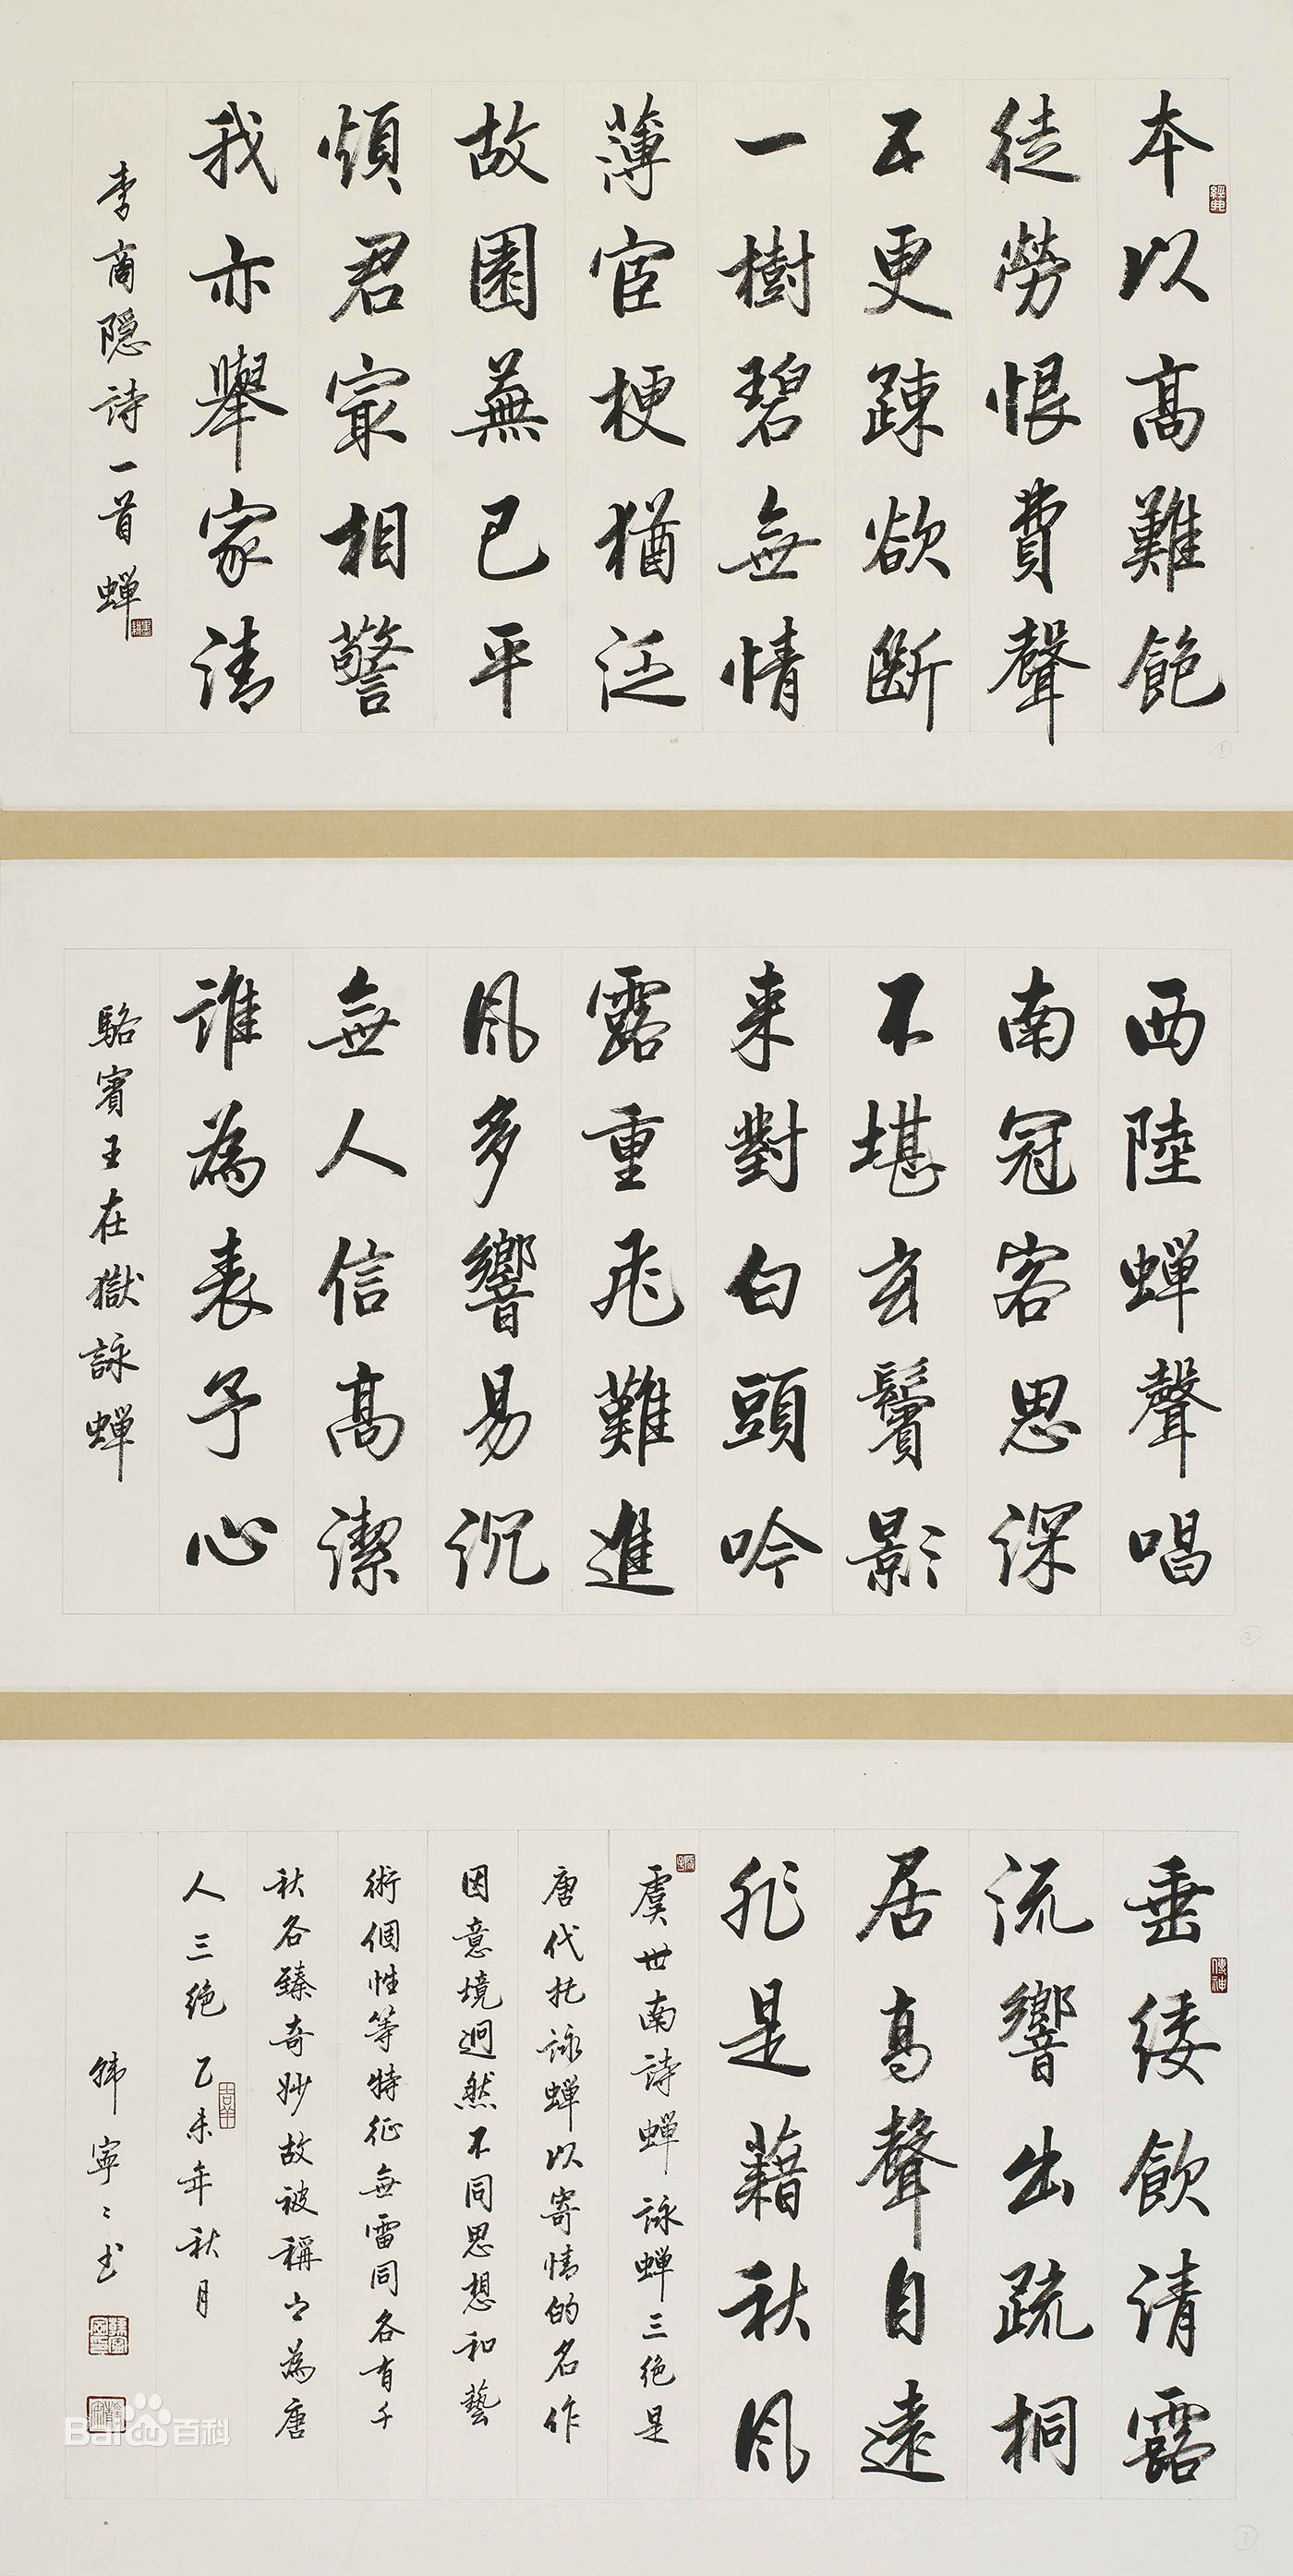 本以高難飽
徒勞恨費聲
五更疎欲斷
一樹碧無情
薄宦梗猶泛
故園蕪已平
煩君冣相警
我亦舉家清
李商隐詩一首蝉
西陸蝉聲唱
南冠客思深
不堪玄鬢影
来對白頭吟
露重飛難進
風多響易沉
無人信高潔
誰為表予心
駱賓王在獄詠蝉
垂緌飲清露
流響出疏桐
居高聲自遠
非是藉秋風
虞世南詩蝉 詠蝉三绝是
唐代托詠蝉以寄情的名作
因意境迥然不同思想和藝
術個性等特征無雷同各有千
秋各臻奇妙故被稱之為唐
人三绝 乙未年秋月
韩寧寧书
Baidu百科